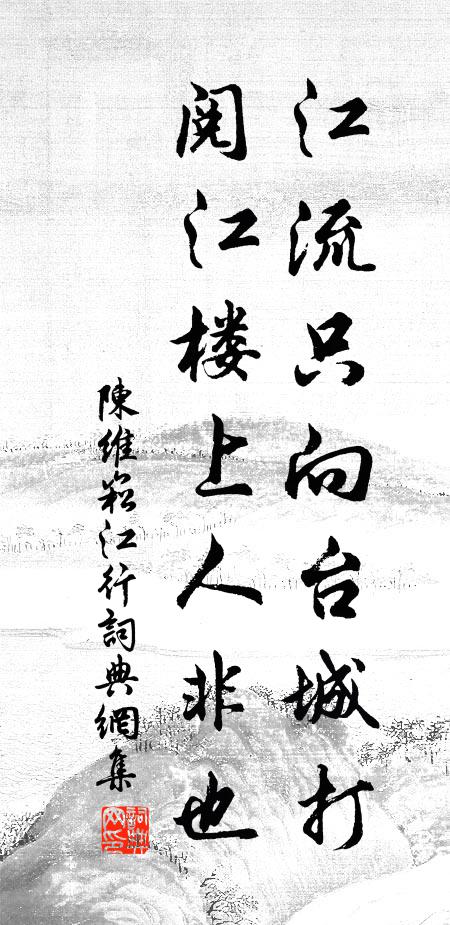 江流只向台城打
阅江楼上人非也
陳維崧江行詞典網集